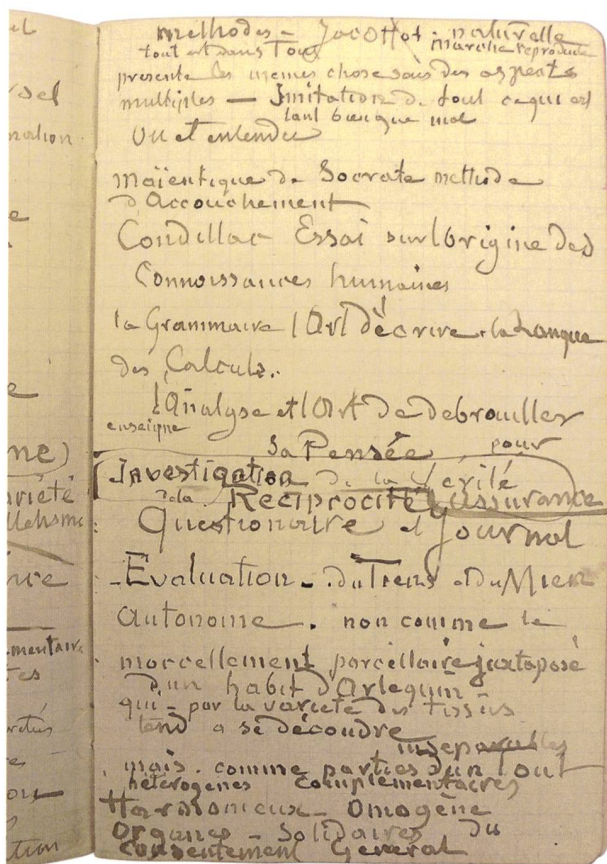 méthodes - Jacottot - naturelle
tout est dans Tout marche reproduite
présente les memes chose sous des aspects
multiples - Imitation de tout ce qui est
tant bien que mal
Vu et entendu
maïeutique de Socrate methode
d'Accouchement
Condillac Essai sur l'Origine des
Connoissances humaines
la Grammaire l'Art d'écrire - la Langue
des Calculs.
l'Analyse et l'Art de debrouiller
enseigne
sa Pensée pour
Investigation de la Vérité
de la Réciprocité assurance
Questionaire et Journal
- Evaluation - du Tiens et du Mien
Autonome. non comme le
morcellement parcellaire juxtaposé
d'un habit d'Arlequin
qui - par la varieté des tissus
tend a se découdre
inseparables
mais. comme parties d'un Tout
héterogènes Complementaires
Harmonieux - Omogène
Organes - Solidaires du
Consentement General
ne)
ariété
mentaire